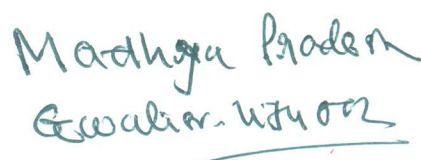 Madhya Pradesh
Gwalior - 474002